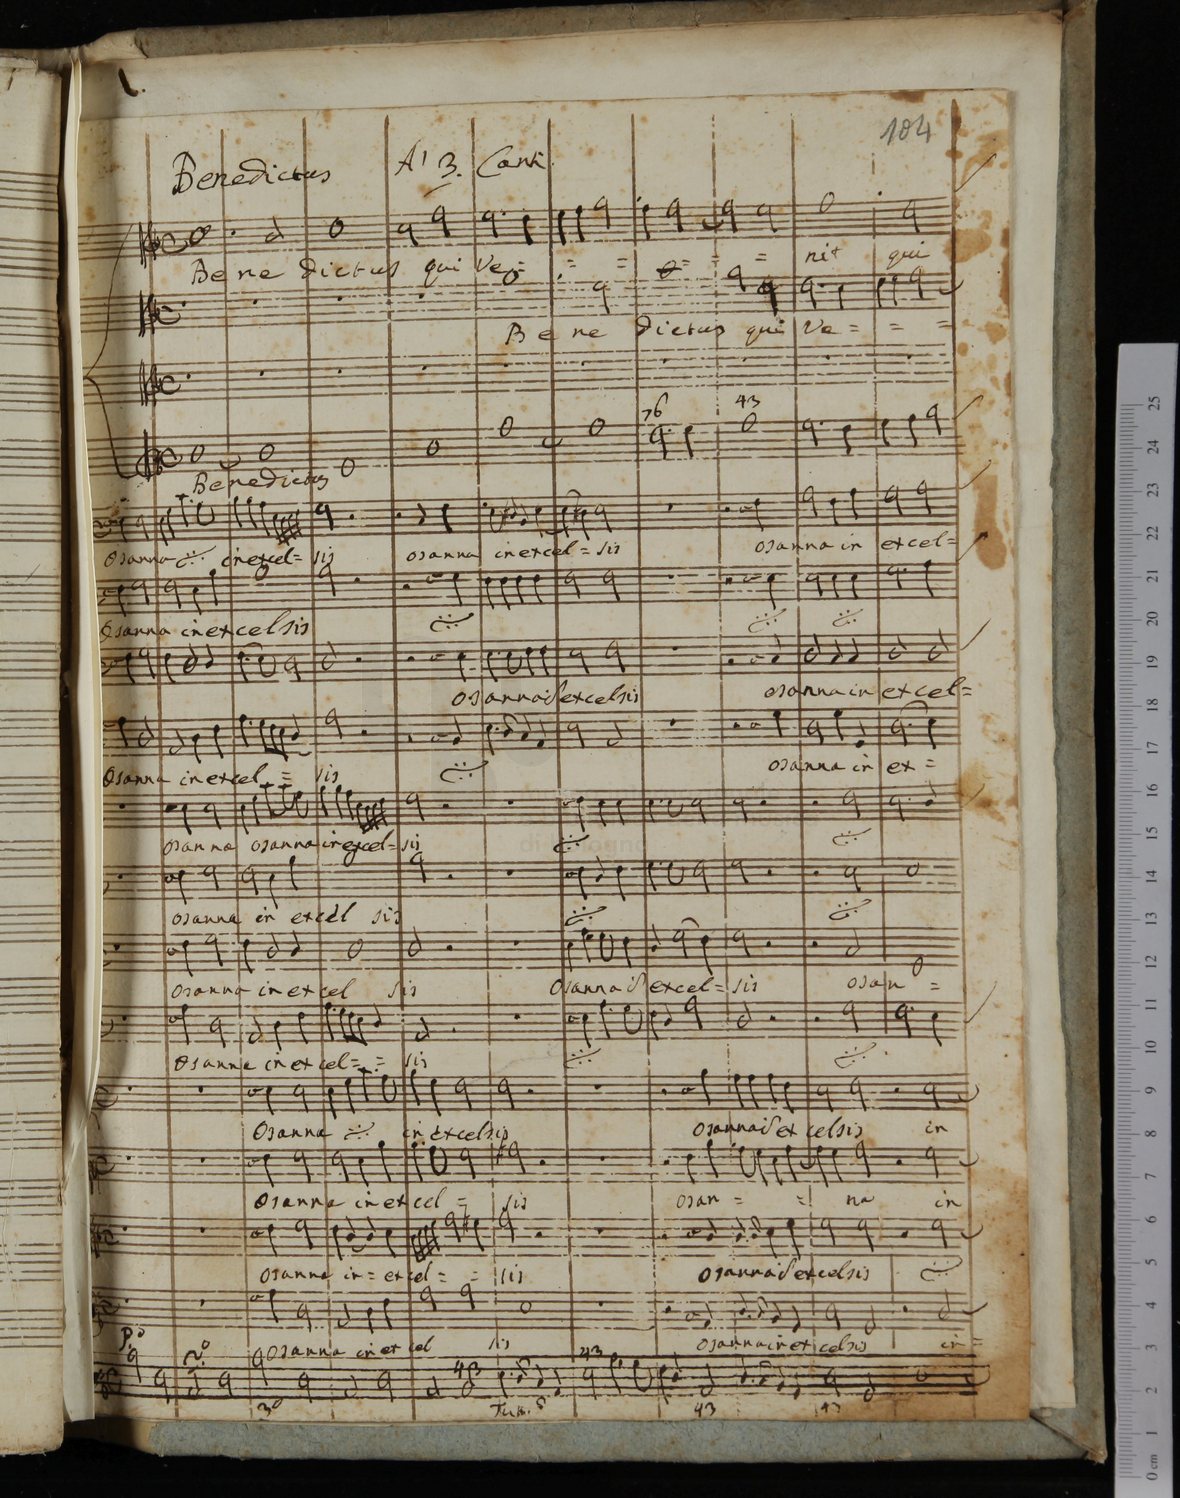 104
Benedictus A' 3. Canti
Be ne dictus qui Ve = = = = = nit qui
Be ne dictus qui Ve = = =
76 43
Benedictus
Osanna in excel= sis osanna in excel= sis osanna in excel=
Osanna in excelsis
osanna excelsis osanna in excel=
Osanna in excel = sis osanna in ex =
osanna osanna in excel= sis
osanna in excel sis
osanna in excel sis Osanna excel= sis osan =
Osanna in excel= = sis
Osanna in excelsis osanna excelsis in
Osanna in excel = sis osan = = na in
osanna in= excel= = sis osanna excelsis
Po osanna in excel sis osanna in excelsis in =
2o
43 43
3o 43
0 cm 1 2 3 4 5 6 7 8 9 10 11 12 13 14 15 16 17 18 19 20 21 22 23 24 25